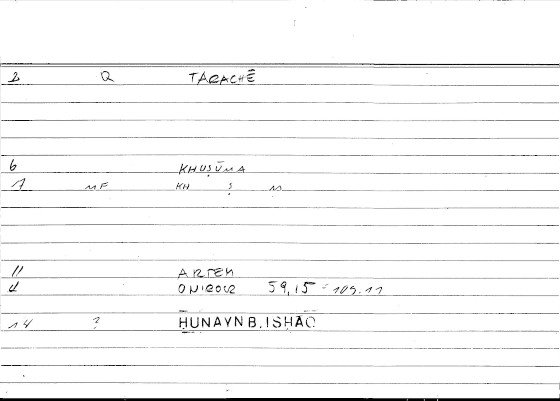 2 Q TARACHĒ
6 KHUṢŪMA
1 MF KH Ṣ M
11 ARTEM
4 ONIROCR 59,15 = 109.11
14 ? ḤUNAYN B. ISḤĀQ